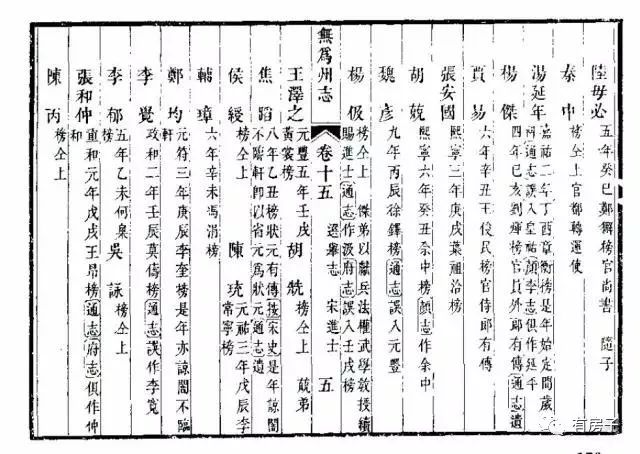 陸毋必 五年癸巳鄭獬榜官尚書 隨子
秦中 榜仝上官都轉運使
湯延年 嘉祐二年丁酉章衡榜是年始定間歲
科通志誤入皇祐顏李志俱作延平
楊傑 四年己亥劉煇榜官員外郎有傳通志遺
賈易 六年辛丑王俊民榜官侍郎有傳
張安國 熙寧三年庚戌葉祖洽榜
胡兢 熙寧六年癸丑余中榜顏志作余中
魏彥 九年丙辰徐鐸榜通志誤入元豐
楊伋 榜仝上 傑弟以獻兵法權武學敎授續
賜進士通志作汲府志誤入壬戌榜
無爲州志 卷十五 選舉志 宋進士 五
王澤之 元豐五年壬戌
黃裳榜 胡兟 榜仝上 兢弟
焦蹈 八年乙丑榜狀元有傳按宋史是年諒闇
不臨軒卽以省元爲狀元通志遺
侯綬 榜仝上 陳琉 元祐三年戊辰李
常寧榜
輔璋 六年辛未馮涓榜
鄭均 元符三年庚辰李奎榜是年亦諒闇不臨
軒
李覺 政和二年壬辰莫儔榜通志誤作李寬
李郁 五年乙未何㮚
榜 吳詠 榜仝上
張和仲 重和元年戊戌王昂榜通志府志俱作仲
和
陳丙 榜仝上
有房子